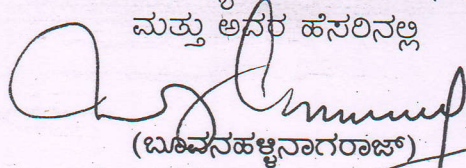 ಮತ್ತು ಅವರ ಹೆಸರಿನಲ್ಲಿ
(ಬೂವನಹಳ್ಳಿನಾಗರಾಜ್)